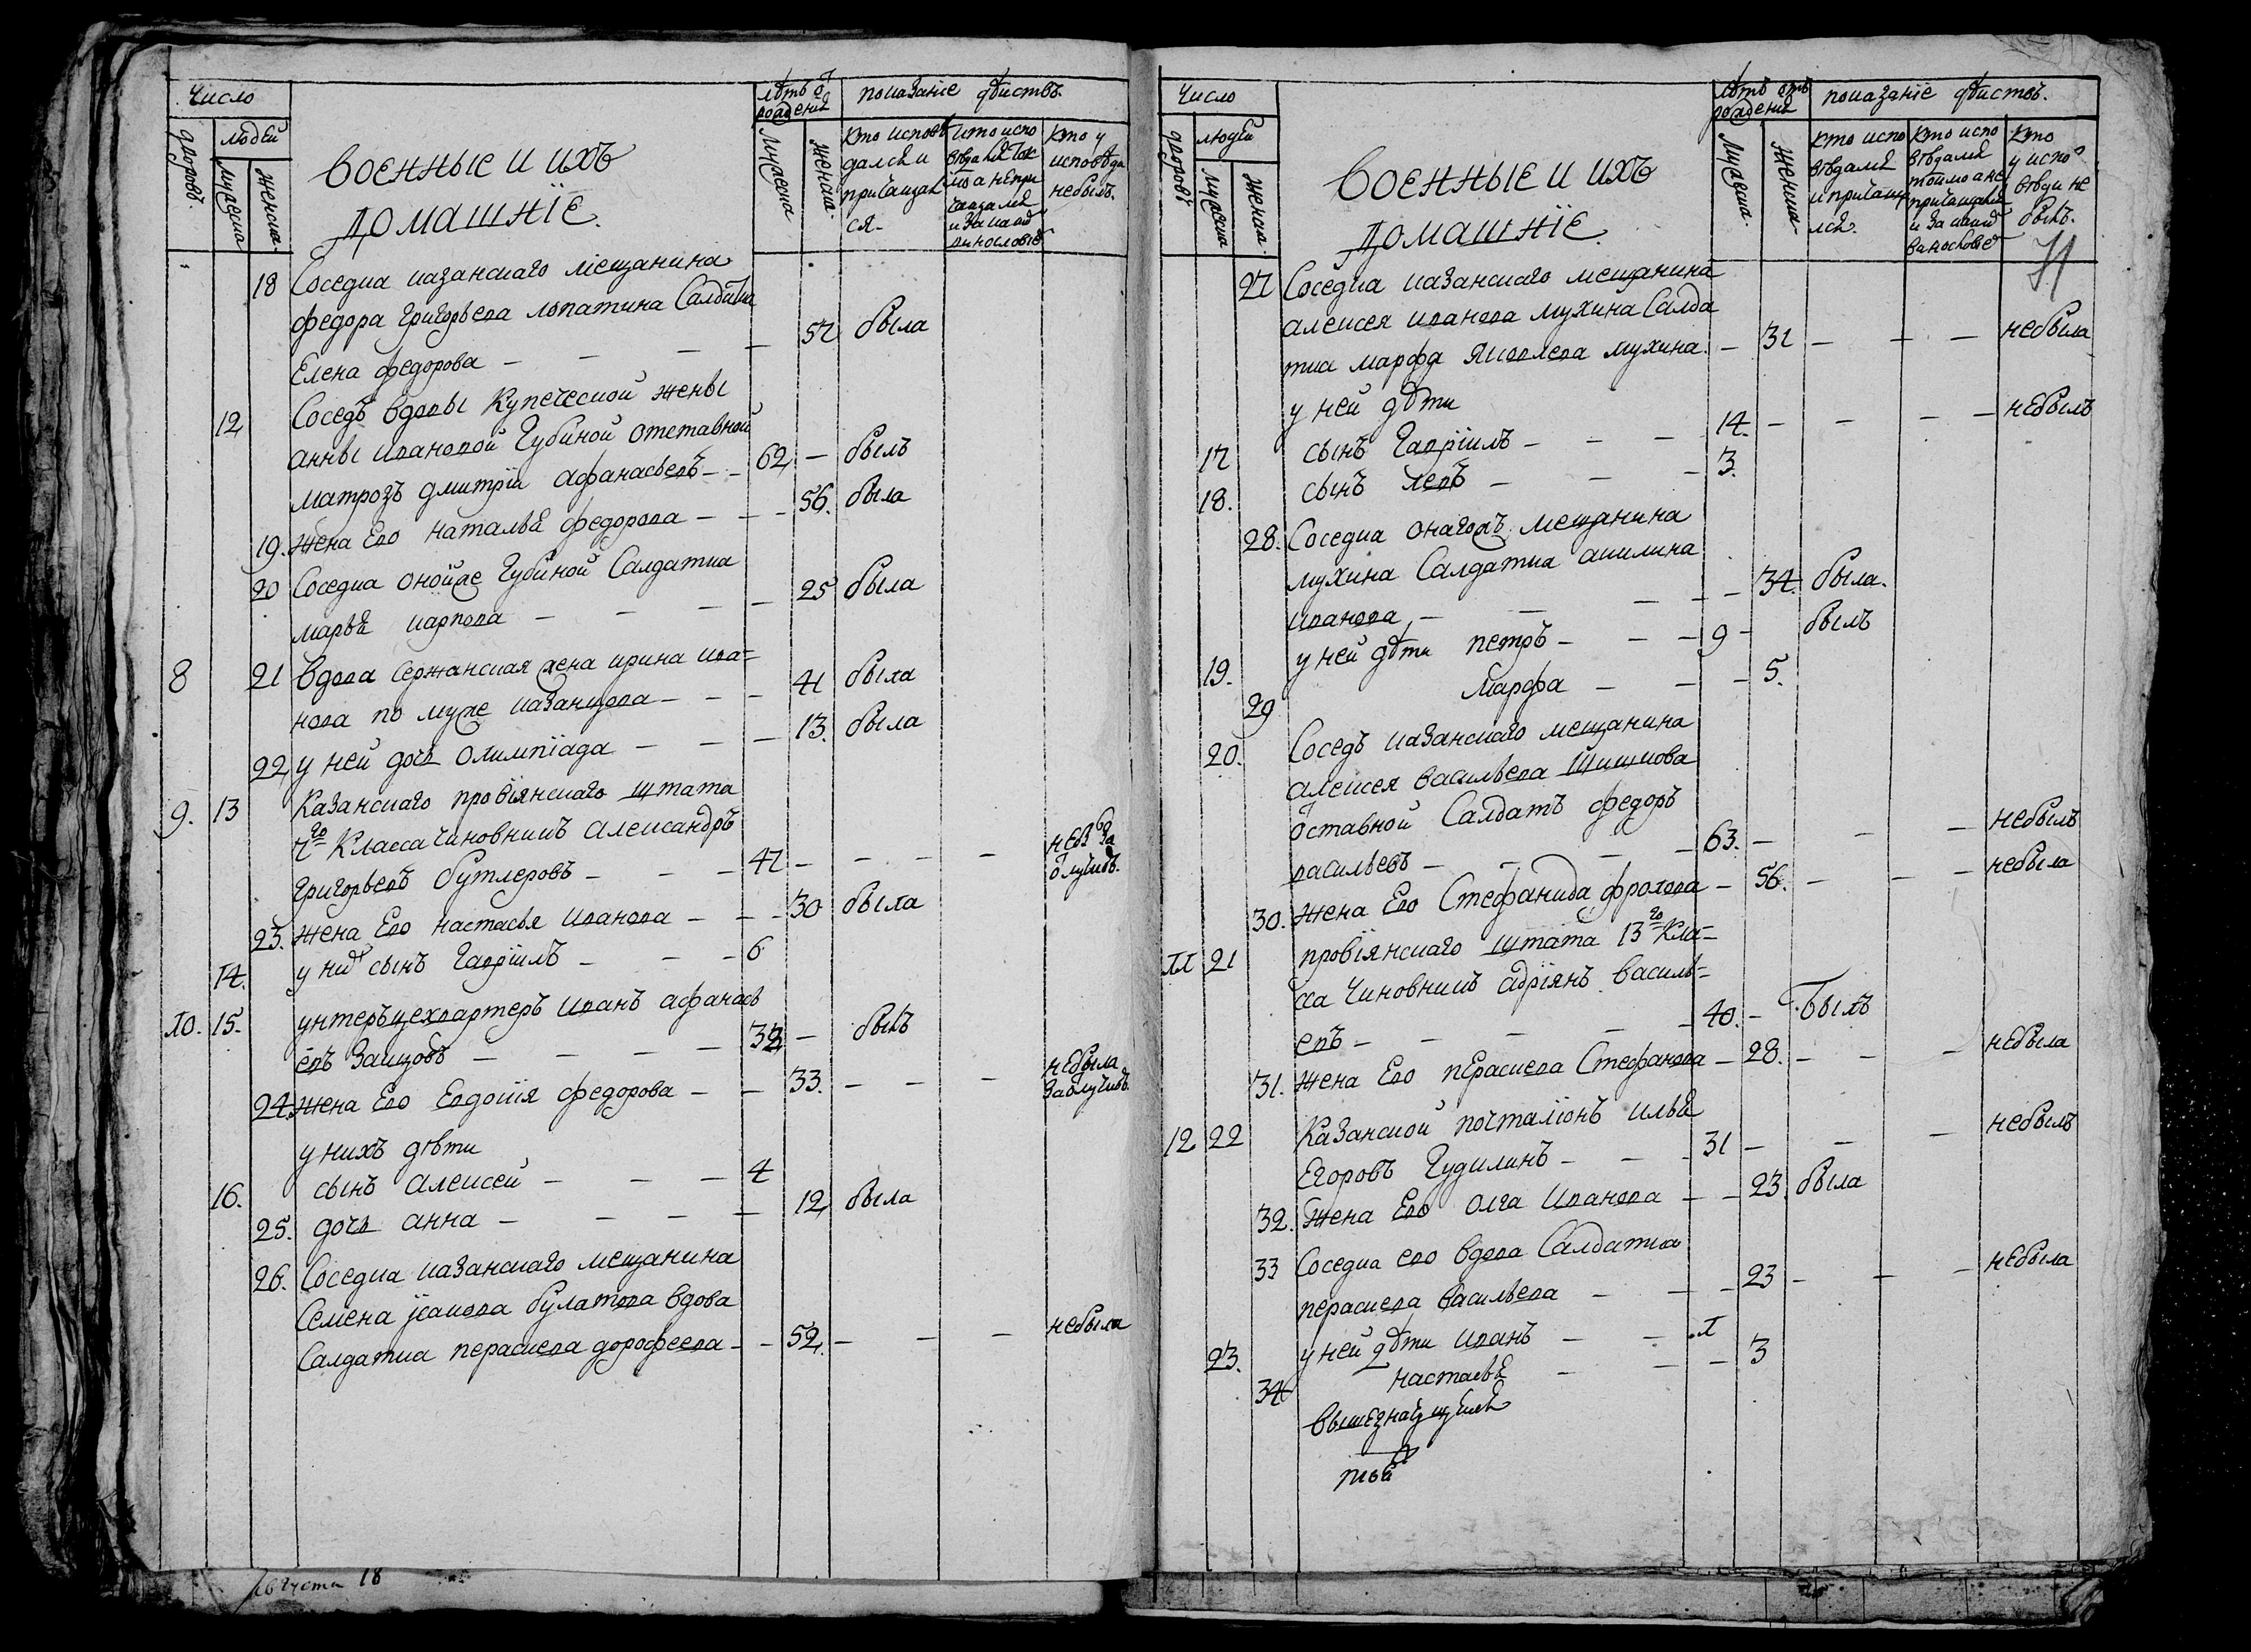 Число
людей
дворовъ.
мужеска
женска.
военные и ихъ
домашнїе.
лѣтъ ѿ
рожденія
мужеска
женска.
показанїе дѣйствъ.
кто исповѣ
дался и
причащал
ся.
небылъ.
18 Соседка казанскаго мещанина
федора григорьева лопатина Салдатка
Елена федорова — — — — 57 была
12 Соседъ вдовы купеческой жены
анны ивановой Губиной отставной
матрозъ дмитрїй афанасьевъ — — 62 — былъ
19. жена Ево наталья федорова — — — 56. была
20 Соседка онойже Губиной Салдатка
марья карпова — — — — 25 была
8 21 вдова сержанская жена ирина ива=
нова по муже казанцова — — — 41 была
22 у ней дочь олимпїада — — — 13. была
9. 13 Казанскаго провїянскаго штата
7го Класса Чиновникъ александръ
григорьевъ бутлеровъ — — — 47 — — — —
23. жена Ево настасья иванова — — — 30 была
14. у них сынъ гаврїилъ — — — 6
10. 15. унтеръцехвартеръ иванъ афанась
евъ Заицовъ — — — — 32 — былъ
24. жена Ево Евдокия федорова — — 33. — — — небыла
у нихъ дѣти
16. сынъ алексей — — — 4
25. дочь анна — — — — 12 была
26. Соседка казанскаго мещанина
Семена исакова булатова вдова
Салдатка пераскева дорофеева — — 52. — — — небыла
августа 18
Число
людей
дворовъ
мужеска
женска
военные и ихъ
домашнїе.
лѣтъ отъ
рожденія
мужеска.
женска
показанїе дѣйствъ.
кто испо
вѣдался
и причащ
лся.
кто испо
вѣдался
кто
у испо
вѣди не
былъ.
27 Соседка казанскаго мещанина
алексея иванова мухина Салда
тка марфа яковлева мухина. — 31 — — — небыла
у ней дѣти
17 сынъ гаврїилъ — — — 14. — — — — небылъ
18. сынъ левъ — — — 3.
28. Соседка онагожъ мещанина
мухина Салдатка акилина
иванова — — — — — 34. была.
19. у ней дѣти петръ — — — 9 — былъ
29 марфа — — — 5.
20. Соседъ казанскаго мещанина
алексея васильева Шишкова
ѿставной Салдатъ федоръ
васильевъ — — — — 63. — — — небылъ
30. жена Ево Стефанида фролова — 56. — — — небыла
11 21 провїянскаго штата 13го Кла=
сса Чиновникъ адрїянъ василь=
евъ — — — — 40. — былъ
31. жена Ево пераскева Стефанова — 28. — — — небыла
12 22 Казанской почталїонъ илья
Егоровъ Гудилинъ — — — 31 — — — небылъ
32. жена Ево олга иванова — — 23 была
33 Соседка ево вдова Салдатка
пераскева васильева — — — 23 — — — небыла
23. у ней дѣти иванъ — — 1
34 настасья — — — 3